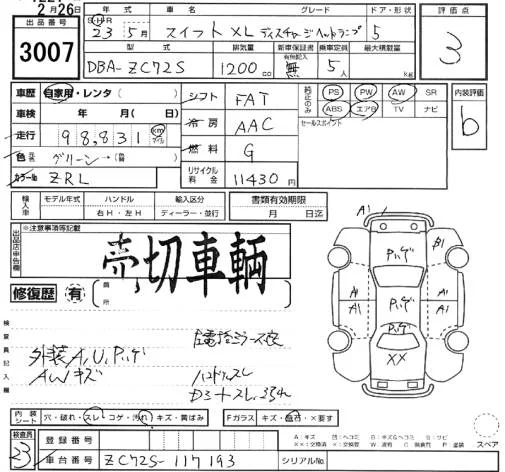 2月26日
出品番号
3007
年式 車名 グレード ドア・形状
S H R
23 5月 スイフト XL ディスチャージヘッドランプ 5
型式 排気量 新車保証書 乗車定員 最大積載量
有無記入
DBA-ZC72S 1200cc 無 5人 kg
評価点
3
車歴 自家用・レンタ( )
車検 年 月( 日)
走行 98,831 km マイル
色 グリーン→(替)
カラーNo ZRL
シフト FAT
冷房 AAC
燃料 G
リサイクル料金 11430円
純正のみ PS PW AW SR(
ABS エアB TV ナビ
セールスポイント
内装評価
b
輸入車 モデル年式 ハンドル 輸入区分 書類有効期限
右H・左H ディーラー・並行 月 日迄
出品店申告欄
※注意事項等記載
売切車輌
修復歴 有 箇所
検査員記入欄
外装A,U,パンゲ
AWキズ
ハンドルスレ
A1
B1
パンゲ
A1 A1
A1 A1
パンゲ
パンゲ
XX
内装シート 穴・破れ・スレ・コゲ・汚れ・キズ・黄ばみ Fガラス キズ・点石・×要す
A:キズ 凹:ヘコミ B:キズ&ヘコミ S:サビ
XX:交換済 X:交換要 W:波有 C:腐食有 P:塗装
スペア
検査員
33
登録番号
車台番号 ZC72S-117193 シリアルNo.